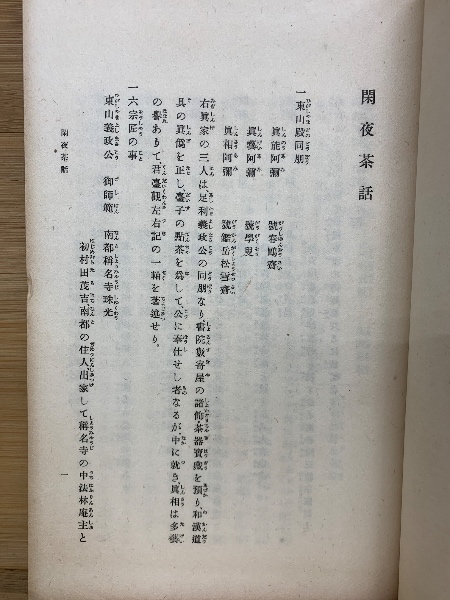 閑夜茶話
一東山殿同朋
眞能阿彌 號春鷗齋
眞藝阿彌 號學叟
眞相阿彌 號鑑岳松雪齋
右眞家の三人は、足利義政公の同朋なり、書院數寄屋の諸飾、茶器寶藏を預り、和漢道
具の眞僞を正し、臺子の點茶を爲して、公に奉仕せし者なるが、中に就き、眞相は多藝
の譽ありて、君臺觀左右記の一軸を著進せり。
一六宗匠の事
東山義政公 御師範 南都稱名寺珠光
初村田茂吉、南都の住人、出家して稱名寺の中法林庵主と
閑夜茶話
一